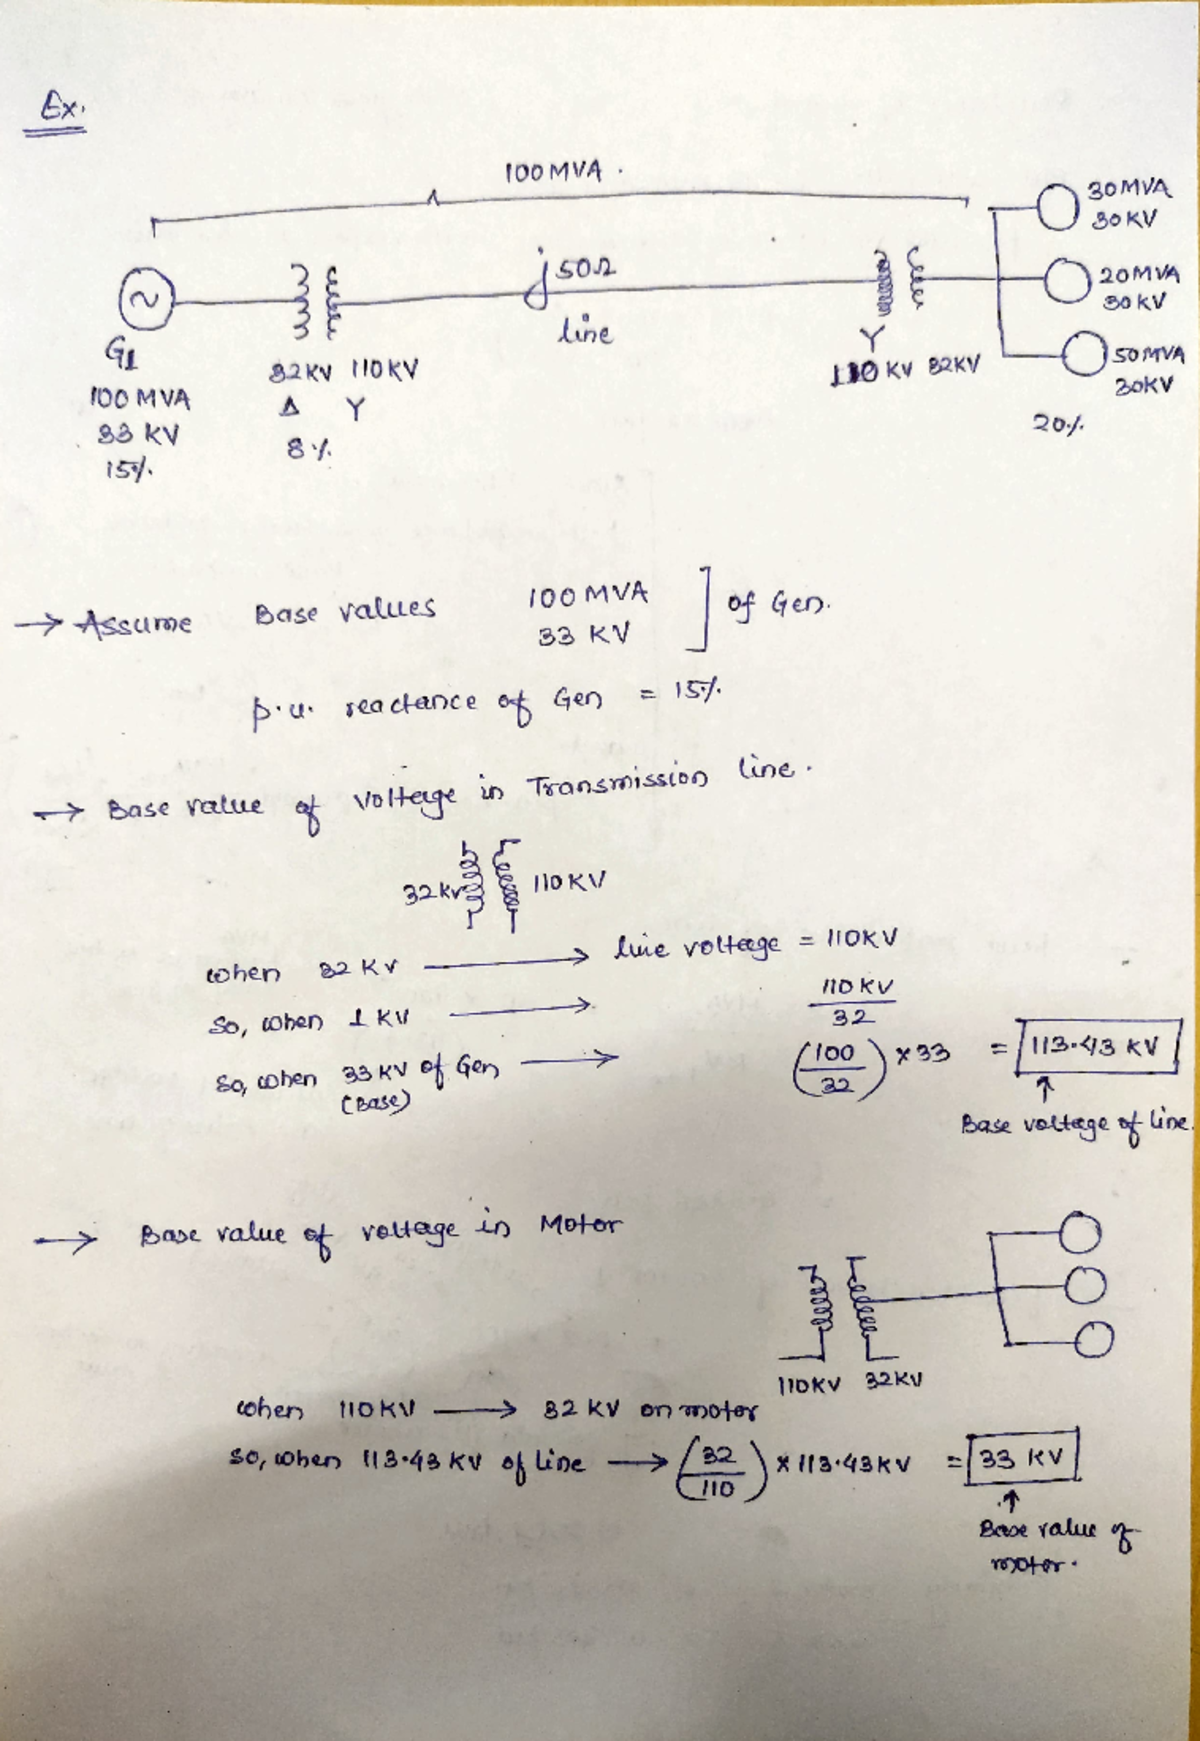 Ex.
100 MVA.
30 MVA
30 KV
20 MVA
30 KV
50 MVA
30KV
20%
j50Ω
line
G1
100 MVA
33 KV
15%
32KV 110KV
Δ Y
8%
Y
110 KV 32KV
→ Assume Base values 100 MVA
33 KV ] of Gen.
p.u. reactance of Gen = 15%
→ Base value of voltage in Transmission line.
32kv 110KV
when 32 KV → line voltage = 110KV
so, when 1 KV → 110 KV / 32
so, when 33 KV of Gen → (100/32) × 33 = 113.43 KV
(Base)
↑
Base voltage of line.
→ Base value of voltage in Motor
110KV 32KV
when 110KV → 32 KV on motor
so, when 113.43 KV of line → (32/110) × 113.43KV = 33 KV
↑
Base value of
motor.